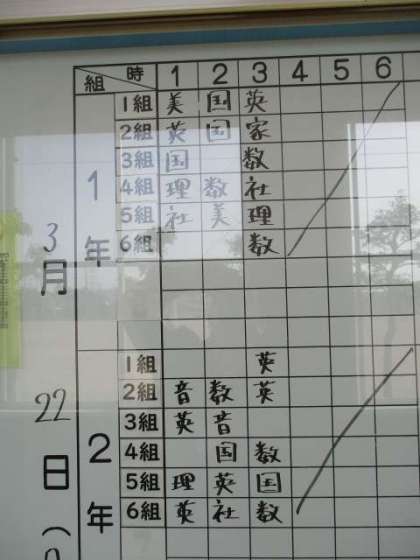 組 時 1 2 3 4 5 6
3月22日(
1年
1組 美 国 英
2組 英 国 家
3組 国 数
4組 理 数 社
5組 社 美 理
6組 数
2年
1組 英
2組 音 数 英
3組 英 音
4組 国 数
5組 理 英 国
6組 英 社 数